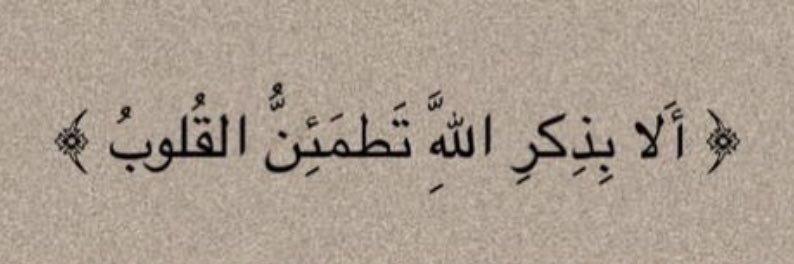 ﴿ أَلا بِذِكرِ اللَّهِ تَطمَئِنُّ القُلوبُ ﴾